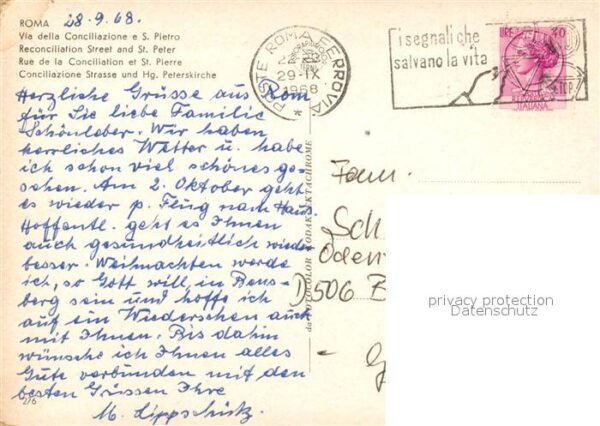 ROMA 28.9.68.
Via della Conciliazione e S. Pietro
Reconciliation Street and St. Peter
Rue de la Conciliation et St. Pierre
Conciliazione Strasse und Hg. Peterskirche
Herzliche Grüsse aus Rom
für Sie liebe Familie
Schönleber. Wir haben
herrliches Wetter u. habe
ich schon viel schönes ge-
sehen. Am 2. Oktober geht
es wieder p. Flug nach Haus.
Hoffentl. geht es Ihnen
auch gesundheitlich wieder
besser. Weihnachten werde
ich, so Gott will, in Bens-
berg sein und hoffe ich
auf ein Wiedersehen auch
mit Ihnen. Bis dahin
wünsche ich Ihnen alles
Gute verbunden mit den
besten Grüssen Ihre
M. Lippschütz.
2/6
POSTE ROMA FERROVIA
29-IX
1968
i segnali che
salvano la vita
STOP
LIRE 40
ITALIANA
KODAK EKTACHROME
Fam.
Sch
Oden
D 506 B
privacy protection
Datenschutz